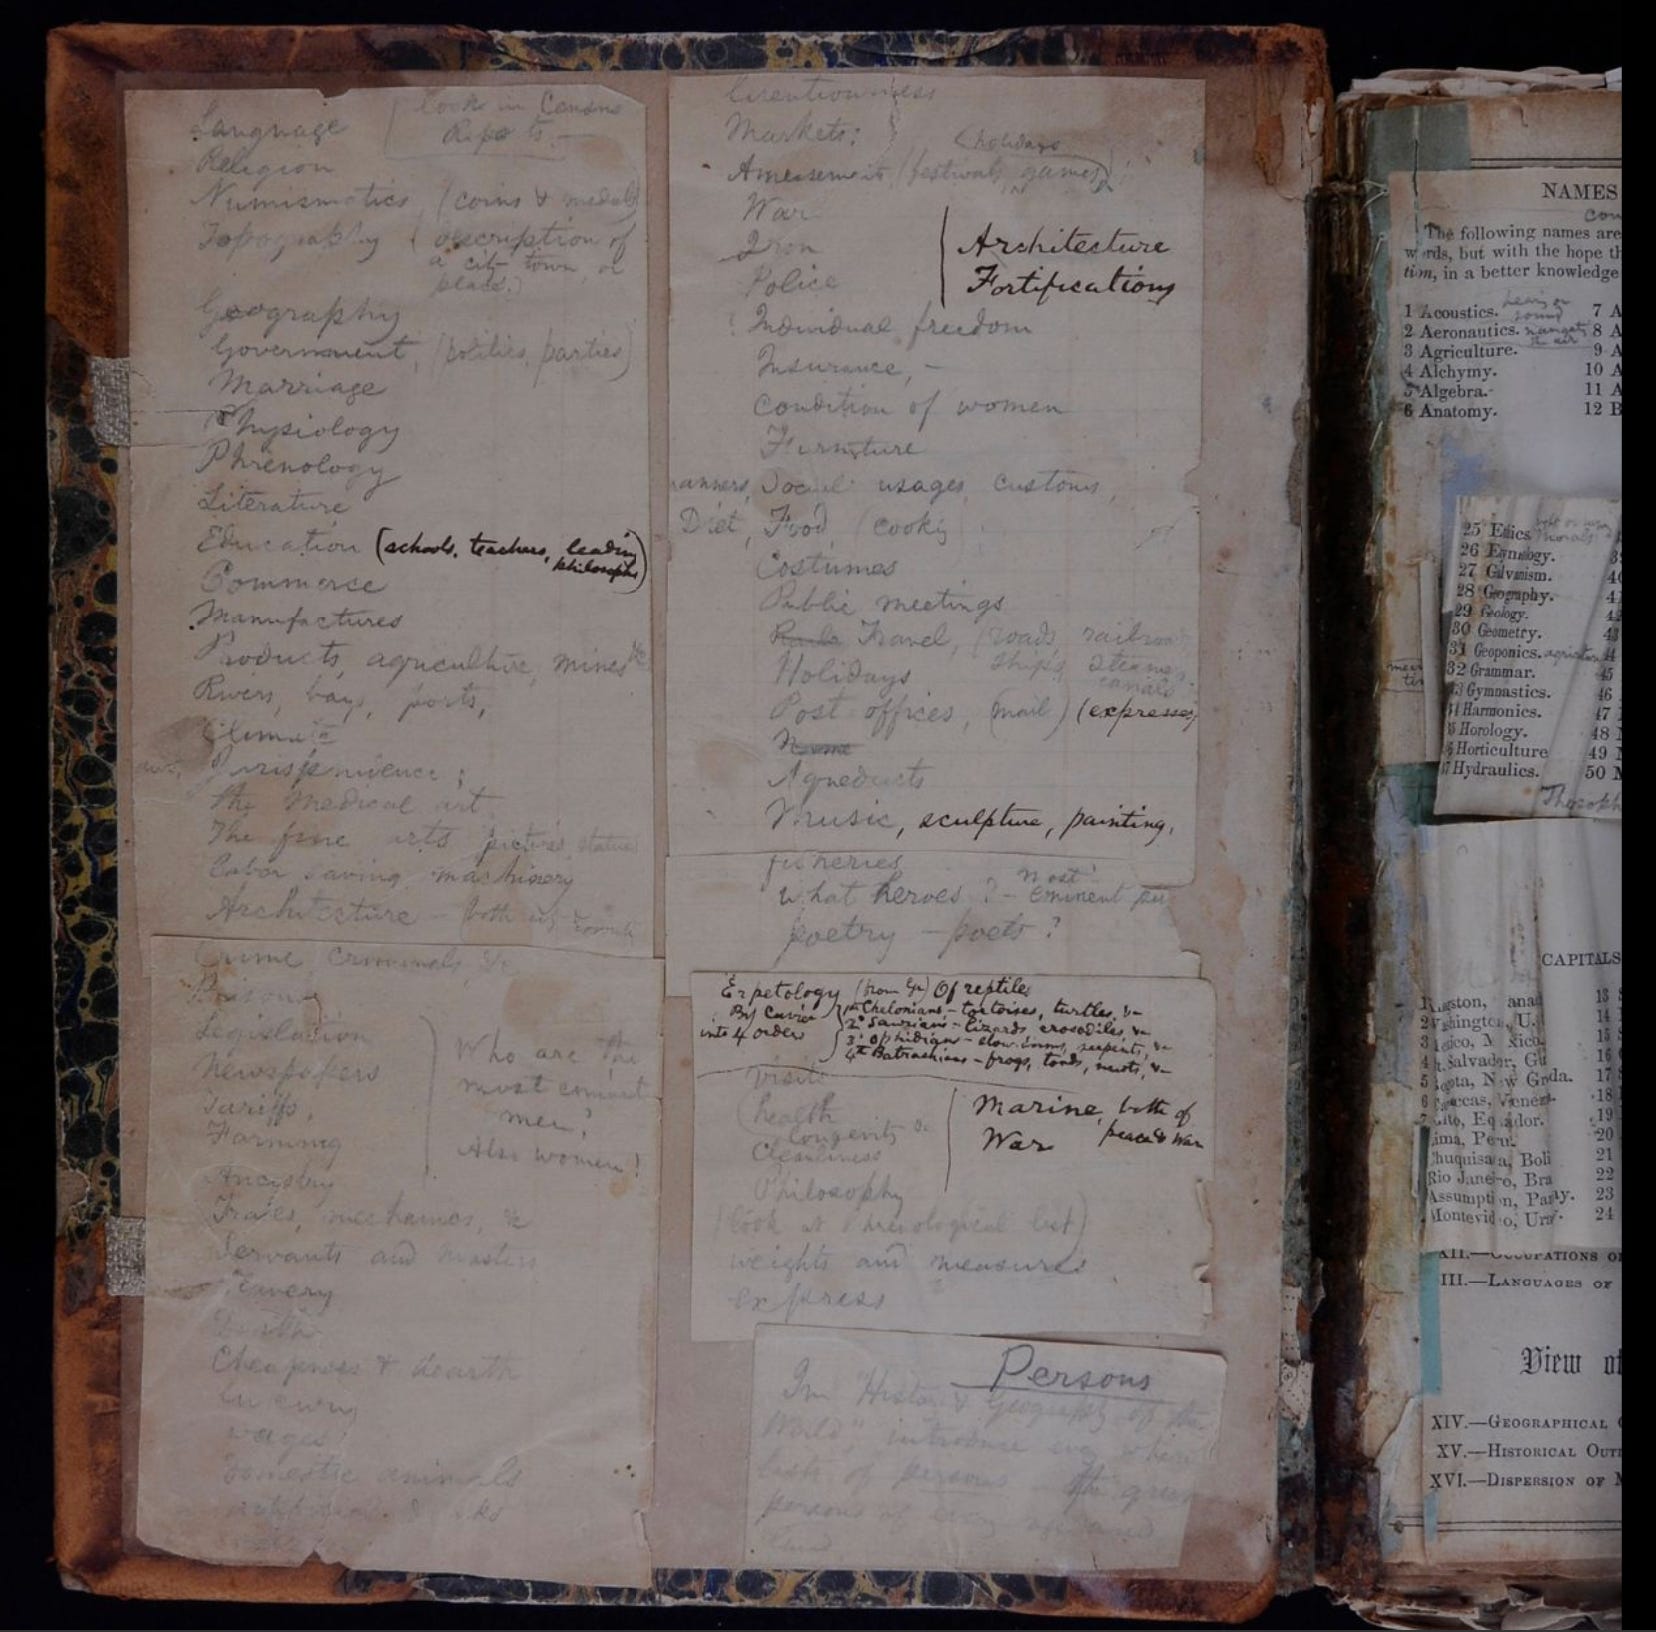 Language
look in Census
Reports. —
Religion
Numismatics (coins & medals)
Topography (description of
a city town, or
place.)
Geography
Government, (politics, parties)
Marriage
Physiology
Phrenology
Literature
Education (schools, teachers, leading
philosophs)
Commerce
Manufactures
Products, agriculture, mines &c
Rivers, bays, ports,
Climate
Jurisprudence;
the medical art
The fine arts pictures, statues
Labor saving machinery
Architecture — both
Crime, criminals, &c
Prisons
Legislation
Newspapers
Tariffs,
Farming
Who are the
most eminent
men?
Also women!
Ancestry
Trades, mechanics, &c
Servants and masters
Slavery
Cheapness & dearth
wages
Domestic animals
Licentiousness
Markets:
holidays
Amusements (festivals, games)
War
Iron
Police
Architecture
Fortifications
Individual freedom
Insurance, —
Condition of women
Furniture
anners, Social usages, customs,
Diet, Food, (cook'g)
Costumes
Public meetings
Travel, (roads, railroads
ships, steams,
canals
Holidays
Post offices, (mail) (expresses)
Name
Aqueducts
Music, sculpture, painting,
fisheries
What heroes? — most
eminent
poetry — poets?
Erpetology (from Gr) Of reptiles
By Cuvier
into 4 orders
1st Chelonians — tortoises, turtles, &c
2d Saurians — lizards, crocodiles, &c
3d Ophidians — slow-worms, serpents, &c
4th Batrachians — frogs, toads, newts, &c
Visits
health
longevity &c
Cleanliness
Marine, both of
peace & war
War
Philosophy
(look at Phrenological list)
weights and measures
express
Persons
In "History & Geography of the
World," introduce every where
lists of persons — the great
persons of every age and
land
NAMES
The following names are
words, but with the hope th
tim, in a better knowledge
1 Acoustics. 7 A
2 Aeronautics. 8 A
3 Agriculture. 9 A
4 Alchymy. 10 A
5 Algebra. 11 A
6 Anatomy. 12 B
25 Ethics
26 Etymology.
27 Galvanism.
28 Geography.
29 Geology.
30 Geometry. 43
31 Geoponics. 44
32 Grammar. 45
33 Gymnastics. 46
34 Harmonics. 47
35 Horology. 48
36 Horticulture 49
37 Hydraulics. 50
CAPITALS
Kingston, anad 13
2 Washington, U. 14
3 exico, M xico. 15
4 Salvador, Gu 16
5 ogota, N w Gnda. 17
6 Caraccas, Venez. 18
7 uito, Eq ador. 19
ima, Peru. 20
huquisaca, Boli 21
Rio Janeiro, Bra 22
Assumption, Pa ay. 23
Montevideo, Ur 24
XII.—OCCUPATIONS O
III.—LANGUAGES OF
View of
XIV.—GEOGRAPHICAL
XV.—HISTORICAL OUT
XVI.—DISPERSION OF